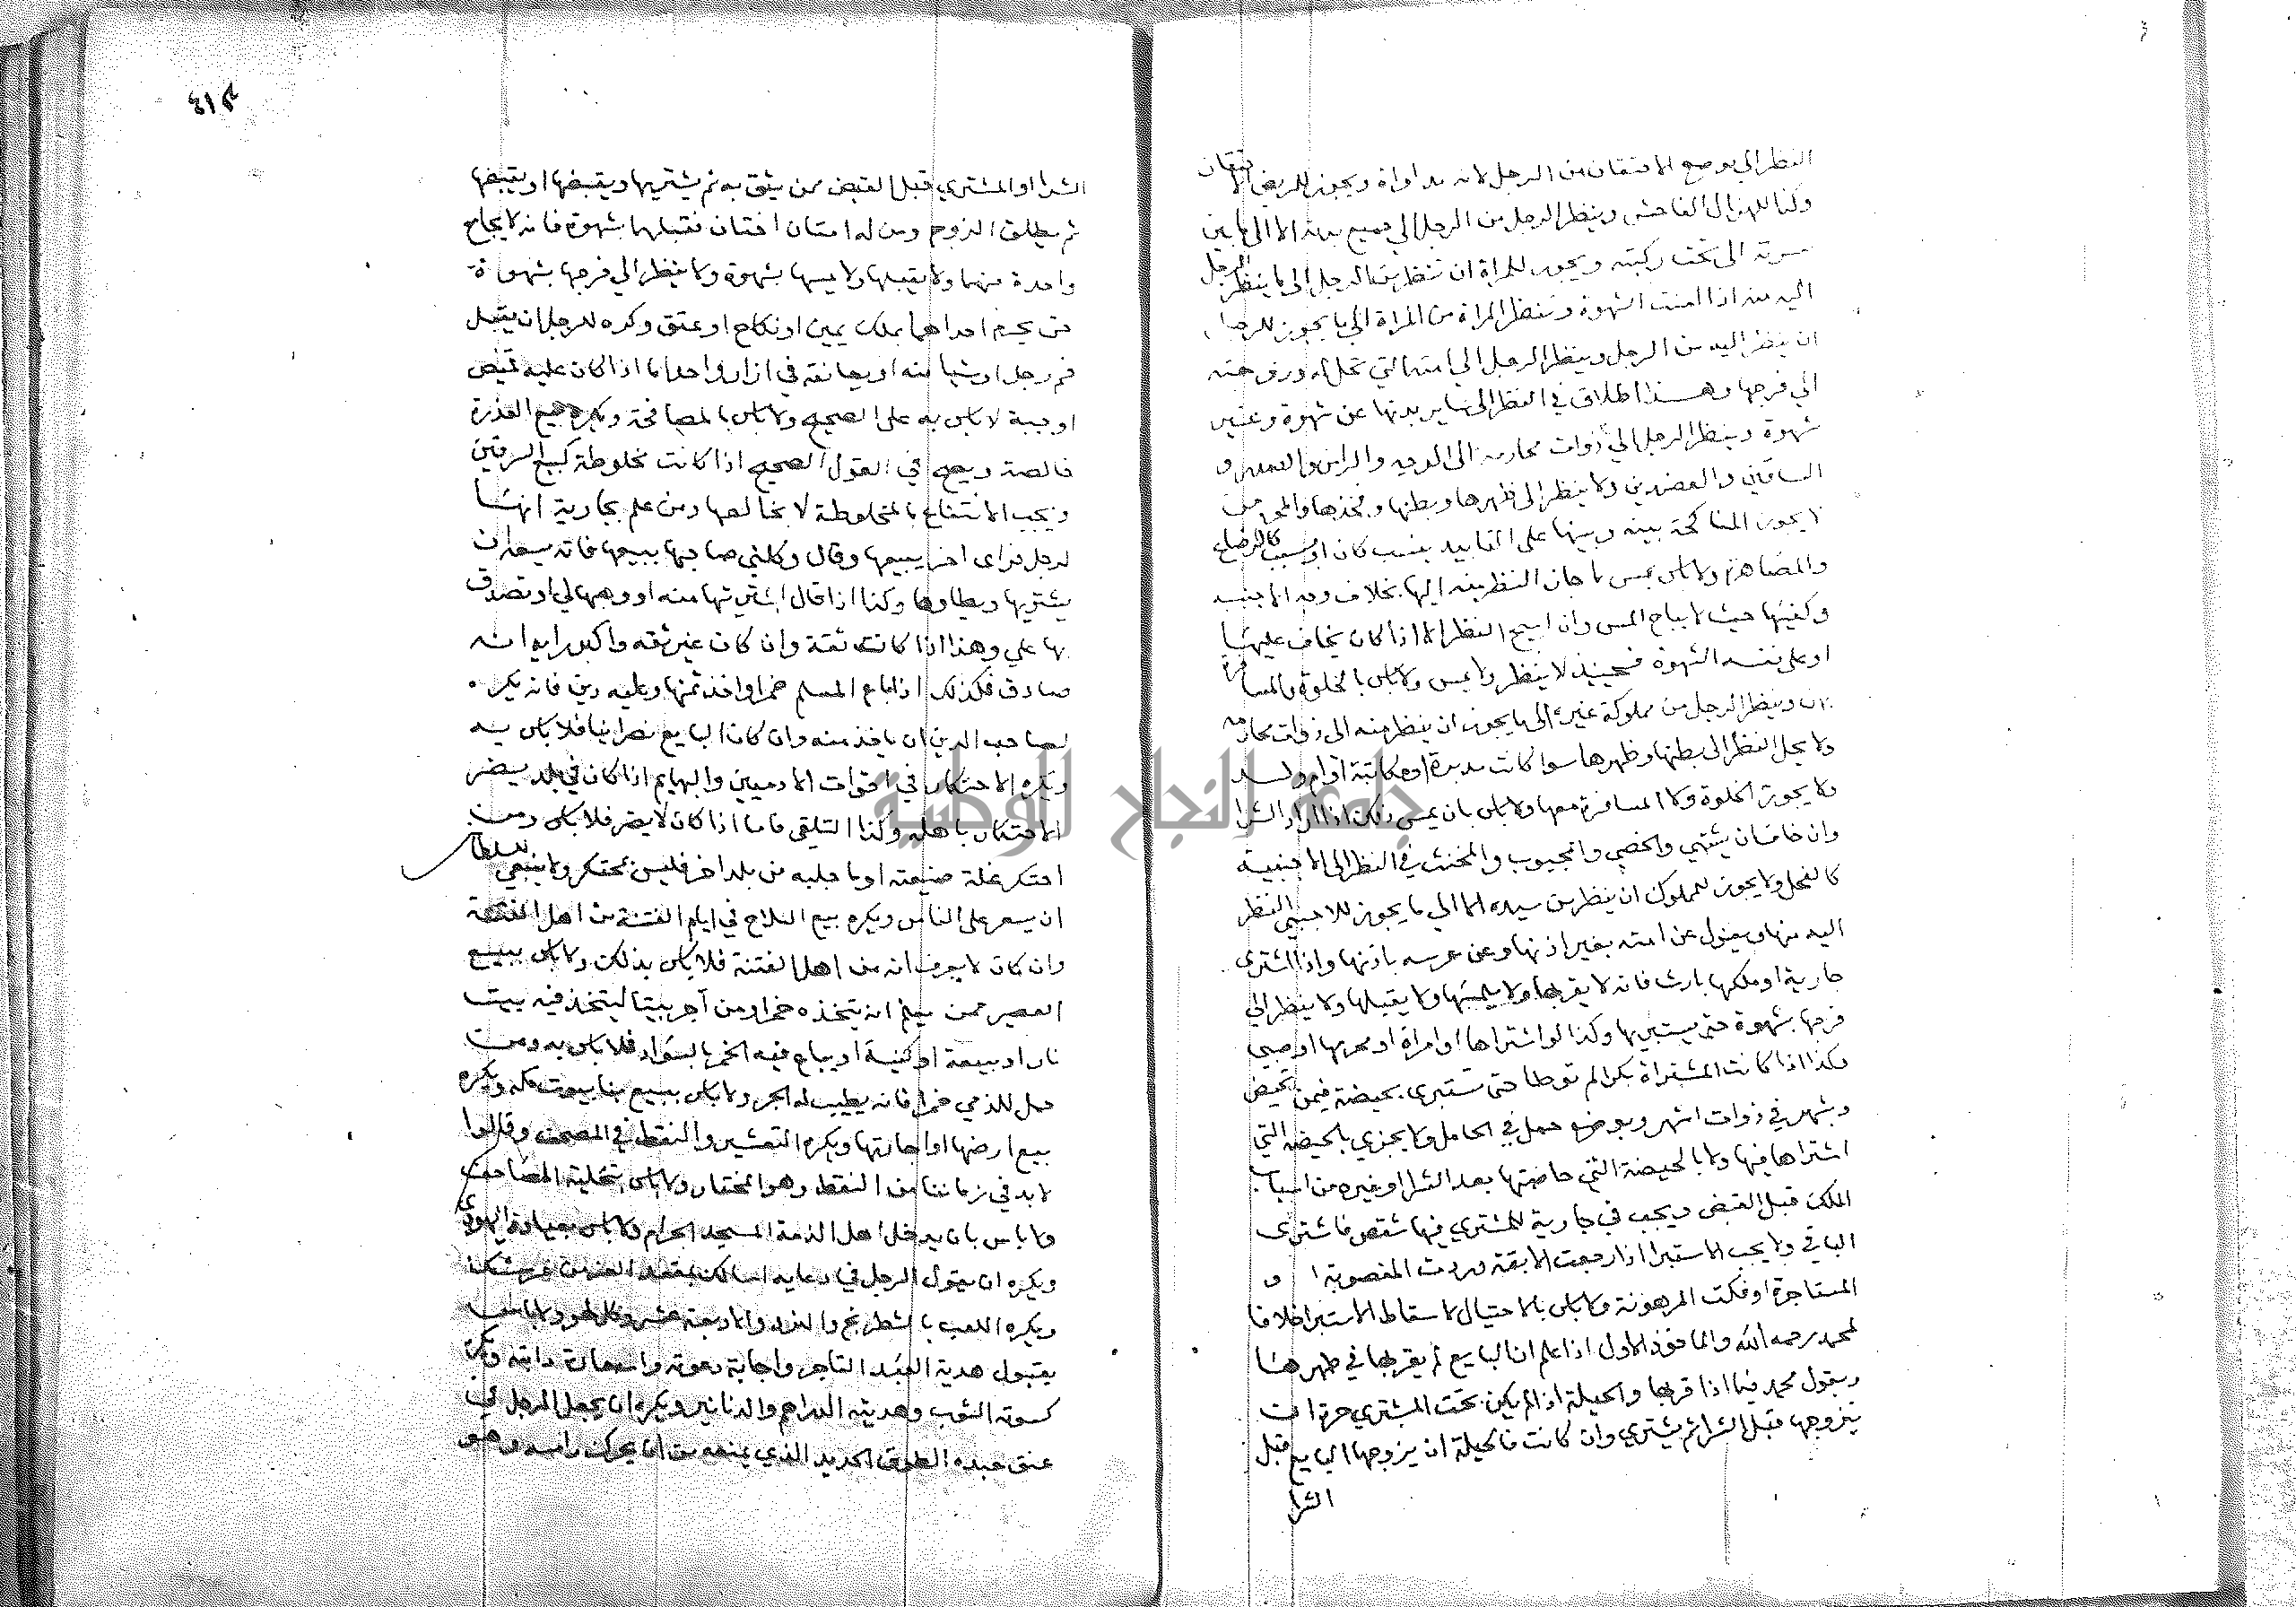 النظر الي موضع الاحتقان من الرجل لانه مداواة ويجوز للمريض الاحتقان
وكذا للهزال الفاحش وينظر الرجل من الرجل الي جميع بدنه الا الى ما بين
سرته الى تحت ركبته ويجوز للمراة ان تنظر من الرجل الى ما ينظر الرجل
اليه منه اذا امنت الشهوة وتنظر المراة من المراة الي ما يجوز للرجل
ان ينظر اليه من الرجل وينظر الرجل الي امته التي تحل له وزوجته
الي فرجها وهذا اطلاق في النظر الى ساير بدنها عن شهوة وغير
شهوة وينظر الرجل الي ذوات محارمه الى الوجه والراس والصدر و
الساقين والعضدين ولا ينظر الى ظهرها وبطنها وفخذها والمحرم من
لا يجوز المناكحة بينه وبينها على التابيد بنسب كان او بسبب كالرضاع
والمصاهرة ولا باس بمس ما جاز النظر منه اليها بخلاف وجه الاجنبية
وكفيها حيث لا يباح المس وان ابيح النظر الا اذا كان يخاف عليها
او على نفسه الشهوة فحينيذ لا ينظر ولا يمس ولا باس بالخلوة والمسافرة
بهن وينظر الرجل من مملوكة غيره الى ما يجوز ان ينظر منه الى ذوات محارمه
ولا يحل النظر الى بطنها وظهرها سوا كانت مدبرة او مكاتبة او ام ولد
ولا يجوز الخلوة ولا المسافرة معها ولا باس بان يمس ذلك اذا اراد الشرا
وان خاف ان يشتهي والخصي والمجبوب والمخنث في النظر الى الاجنبية
كالفحل ولا يجوز للمملوك ان ينظر من سيدته الا الي ما يجوز للاجنبي النظر
اليه منها ويعزل عن امته بغير اذنها وعن عرسه باذنها واذا اشترى
جارية او ملكها بارث فانه لا يقربها ولا يلمسها ولا يقبلها ولا ينظر الي
فرجها بشهوة حتى يستبريها وكذا لو اشتراها من امراة او محرمها او صبي
وكذا اذا كانت المشتراة بكرا لم توطا حتى تستبرى بحيضة فيمن تحيض
وبشهر في ذوات اشهر وبوضع حمل في الحامل ولا يجزي بالحيضة التي
اشتراها فيها ولا بالحيضة التي حاضتها بعد الشرا او غيره من اسباب
الملك قبل القبض ويجب في جارية للمشتري فيها شقص فاشترى
الباقي ولا يجب الاستبرا اذا رجعت الابقة وردت المغصوبة او
المستاجرة او فكت المرهونة ولا باس بالاحتيال لاسقاط الاستبرا خلافا
لمحمد رحمه الله والماخوذ الاول اذا علم ان البايع لم يقربها في طهرها
وبقول محمد فيما اذا قربها والحيلة اذا لم يكن تحت المشتري حرة ان
يتزوجها قبل الشرا ثم يشتري وان كانت فالحيلة ان يزوجها البايع قبل
الشرا
٤١٣
الشرا او المشتري قبل القبض ممن يثق به ثم يشتريها ويقبضها او يقبضها
ثم يطلق الزوج ومن له امتان اختان فقبلهما بشهوة فانه لا يجامع
واحدة منهما ولا يقبلها ولا يمسها بشهوة ولا ينظر الي فرجها بشهوة
حتى يحرم احداهما بملك يمين او نكاح او عتق وكره للرجل ان يقبل
فم رجل او شيا منه او يعانقه في ازار واحد اما اذا كان عليه قميص
او جبة لا باس به على الصحيح ولا باس بالمصافحة ويكره بيع العذرة
خالصة ويصح في القول الصحيح اذا كانت مخلوطة كبيع السرقين
ويجب الانتفاع بالمخلوطة لا بخالصها ومن علم بجارية انها
لرجل فراى اخر يبيعها وقال وكلني صاحبها ببيعها فانه يسعه ان
يشتريها ويطاوها وكذا اذا قال اشتريتها منه او وهبها لي او تصدق
بها علي وهذا اذا كانت ثقة وان كان غير ثقه واكبر رايه انه
صادق فكذلك اذا باع المسلم خمرا واخذ ثمنها وعليه دين فانه يكره
لصاحب الدين ان ياخذ منه وان كان البايع نصرانيا فلا باس به
ويكره الاحتكار في اقوات الادميين والبهايم اذا كان في بلد يضر
الاحتكار باهله وكذا التلقي فاما اذا كان لا يضر فلا باس ومن
احتكر غلة ضيعته او ما جلبه من بلد اخر فليس بمحتكر ولا ينبغي للسلطان
ان يسعر على الناس ويكره بيع السلاح في ايام الفتنة من اهل الفتنة
وان كان لا يعرف انه من اهل الفتنة فلا باس بذلك ولا باس ببيع
العصير ممن يعلم انه يتخذه خمرا ومن آجر بيتا ليتخذ فيه بيت
نار او بيعة او كنيسة او يباع فيه الخمر بالسواد فلا باس به ومن
حمل للذمي خمرا فانه يطيب له الاجر ولا باس ببيع بنا بيوت مكه ويكره
بيع ارضها او اجارتها ويكره التعشير والنقط في المصحف وقالوا
لا بد في زماننا من النقط وهو المختار ولا باس بتحلية المصاحف
ولا باس بان يدخل اهل الذمة المسجد الحرام ولا باس بعيادة اليهودي
ويكره ان يقول الرجل في دعايه اسالك بمقعد العز من عرشك
ويكره اللعب بالشطرنج والنرد والاربعة عشر وكل لهو ولا باس
بقبول هدية العبد التاجر واجابة دعوته واستعارة دابته ويكره
كسوته الثوب وهديته الدراهم والدنانير ويكره ان يجعل الرجل في
عنق عبده الطوق الحديد الذي يمنعه من ان يحرك راسه وهو
جامعة النجاح الوطنية